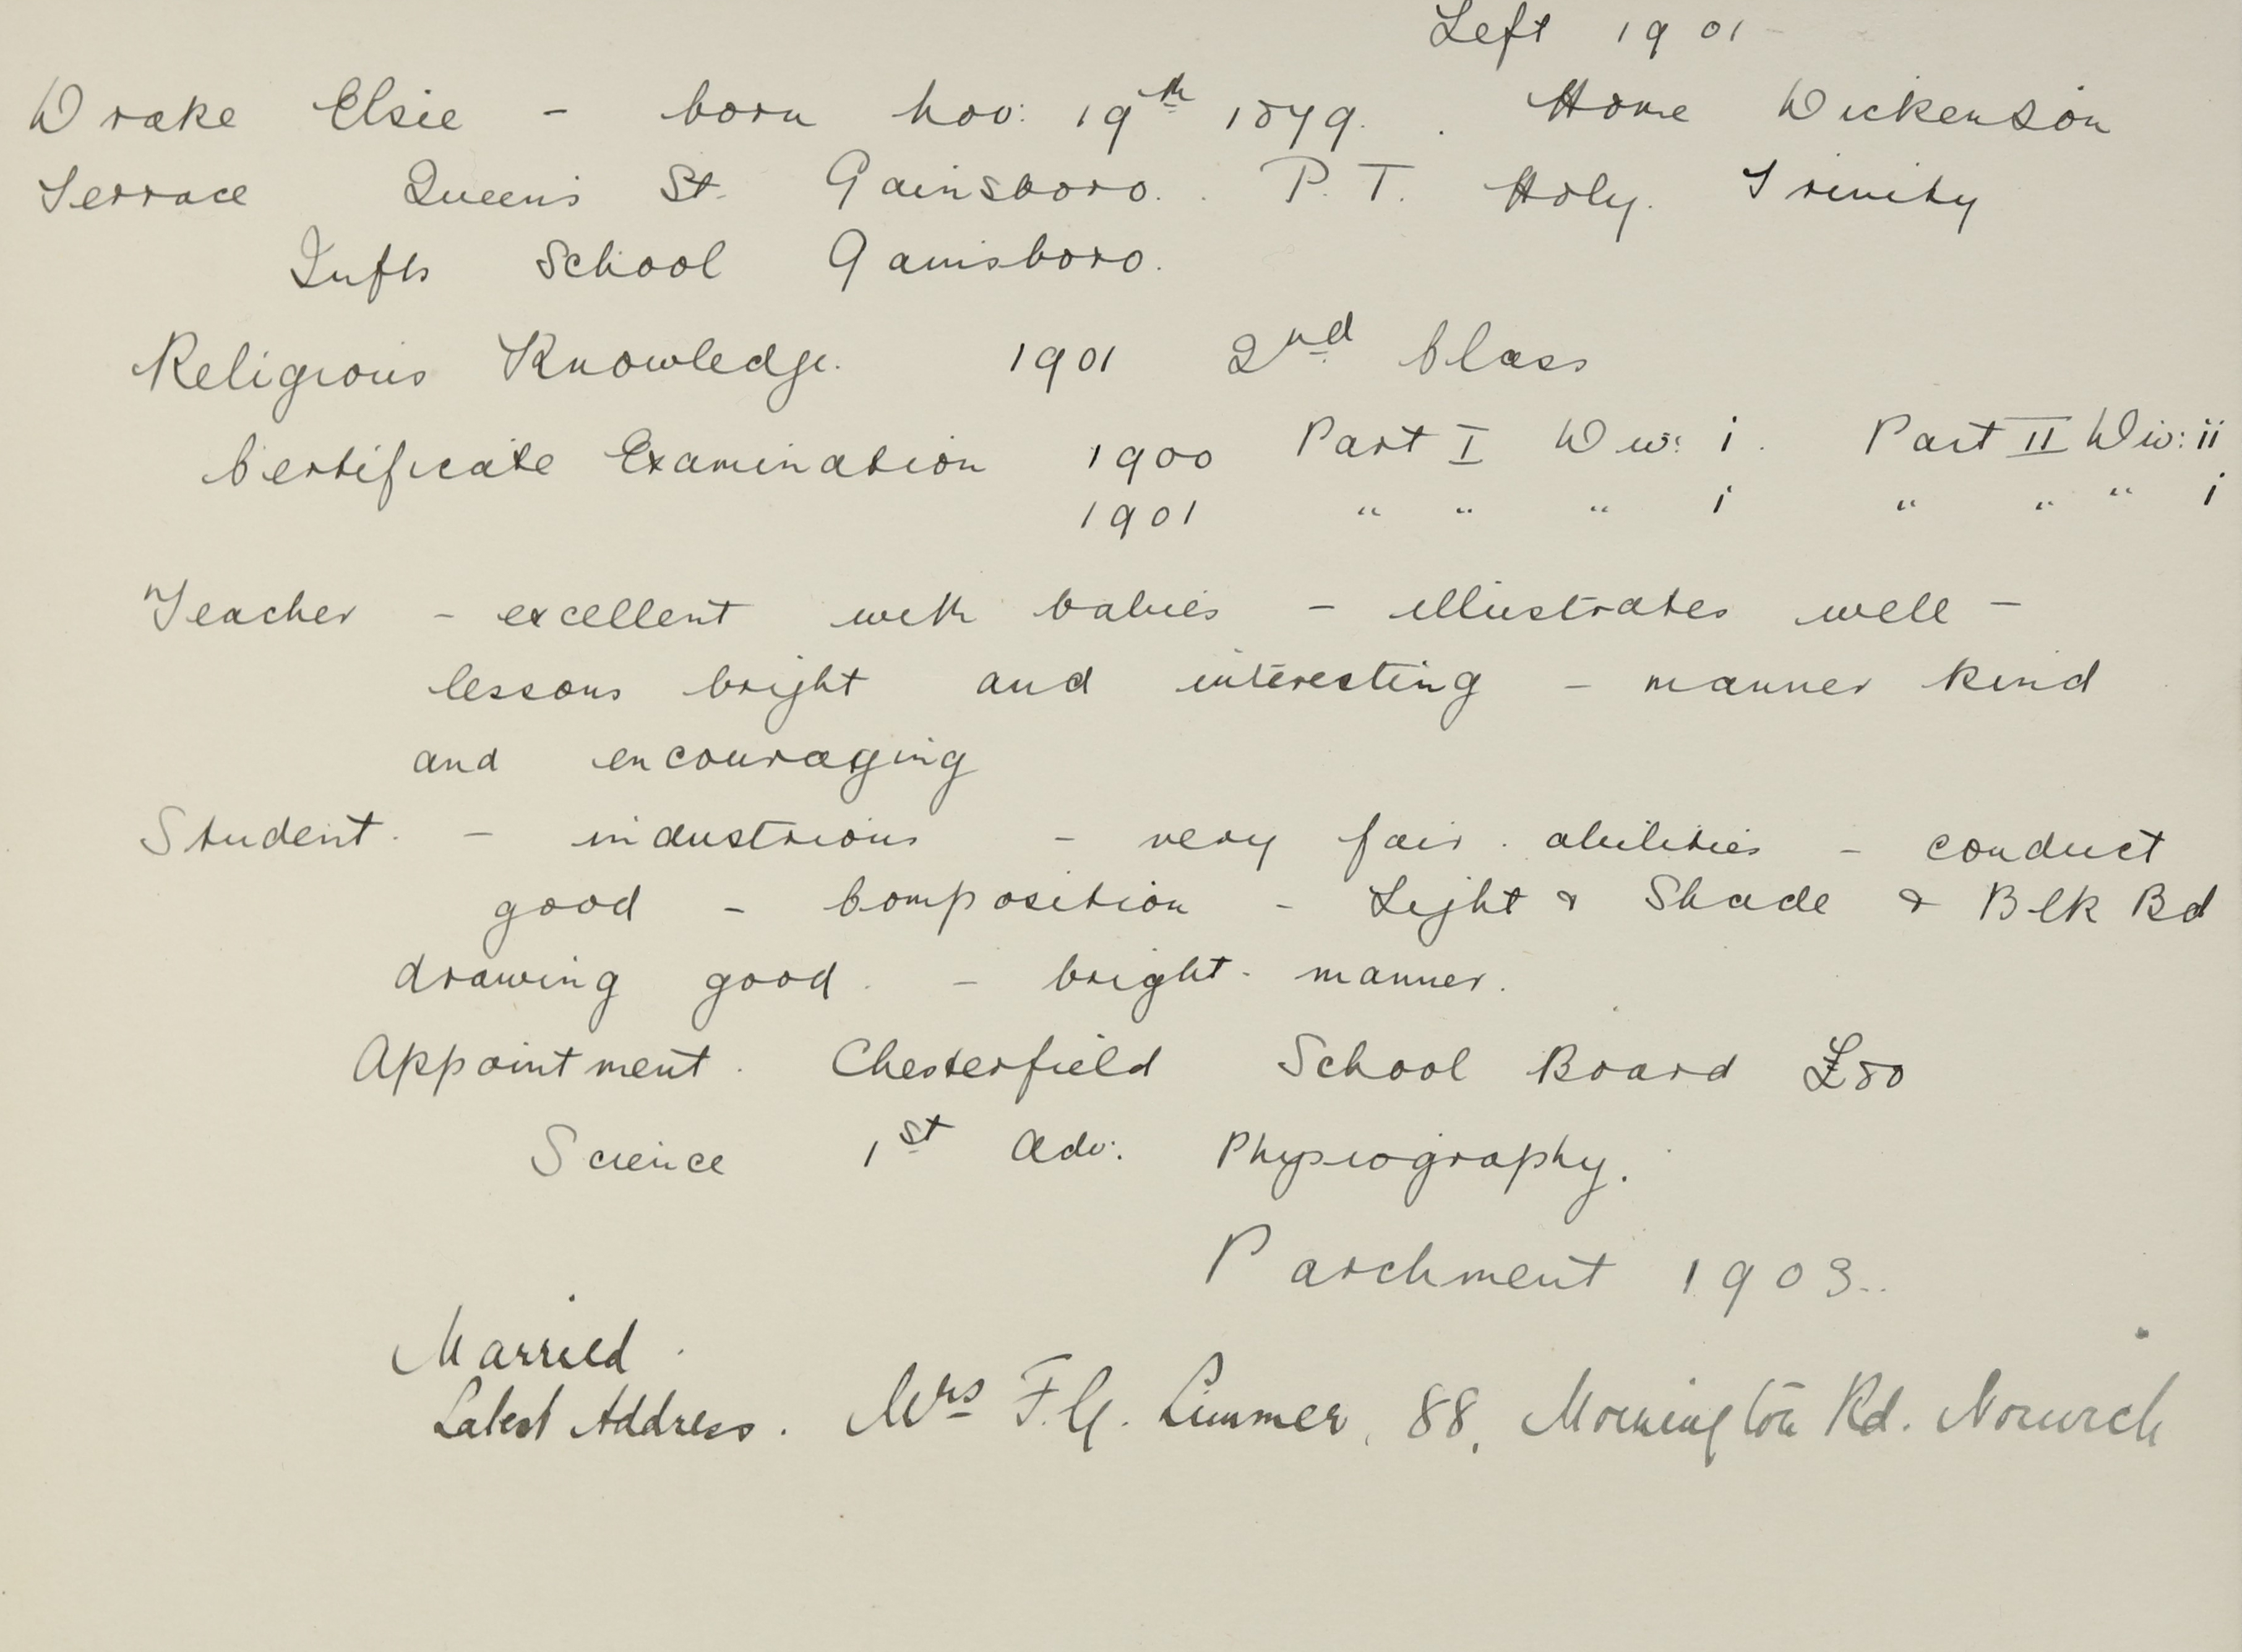 Left 1901
Drake Elsie - born Nov: 19th 1879. Home Dickenson
Terrace Queen's St. Gainsboro. P. T. Holy Trinity
Infts School Gainsboro.
Religious Knowledge. 1901 2nd Class
Certificate Examination 1900 Part I Div: i. Part II Div: ii
1901 " " " i " " " i
Teacher - excellent with babies - illustrates well -
lessons bright and interesting - manner kind
and encouraging
Student. - industrious - very fair abilities - conduct
good - Composition - Light & Shade & Blk Bd
drawing good - bright manner.
Appointment. Chesterfield School Board £80
Science 1st Adv: Physiography.
Parchment 1903.
Married.
Latest Address. Mrs F.G. Limmer, 88, Mornington Rd. Norwich